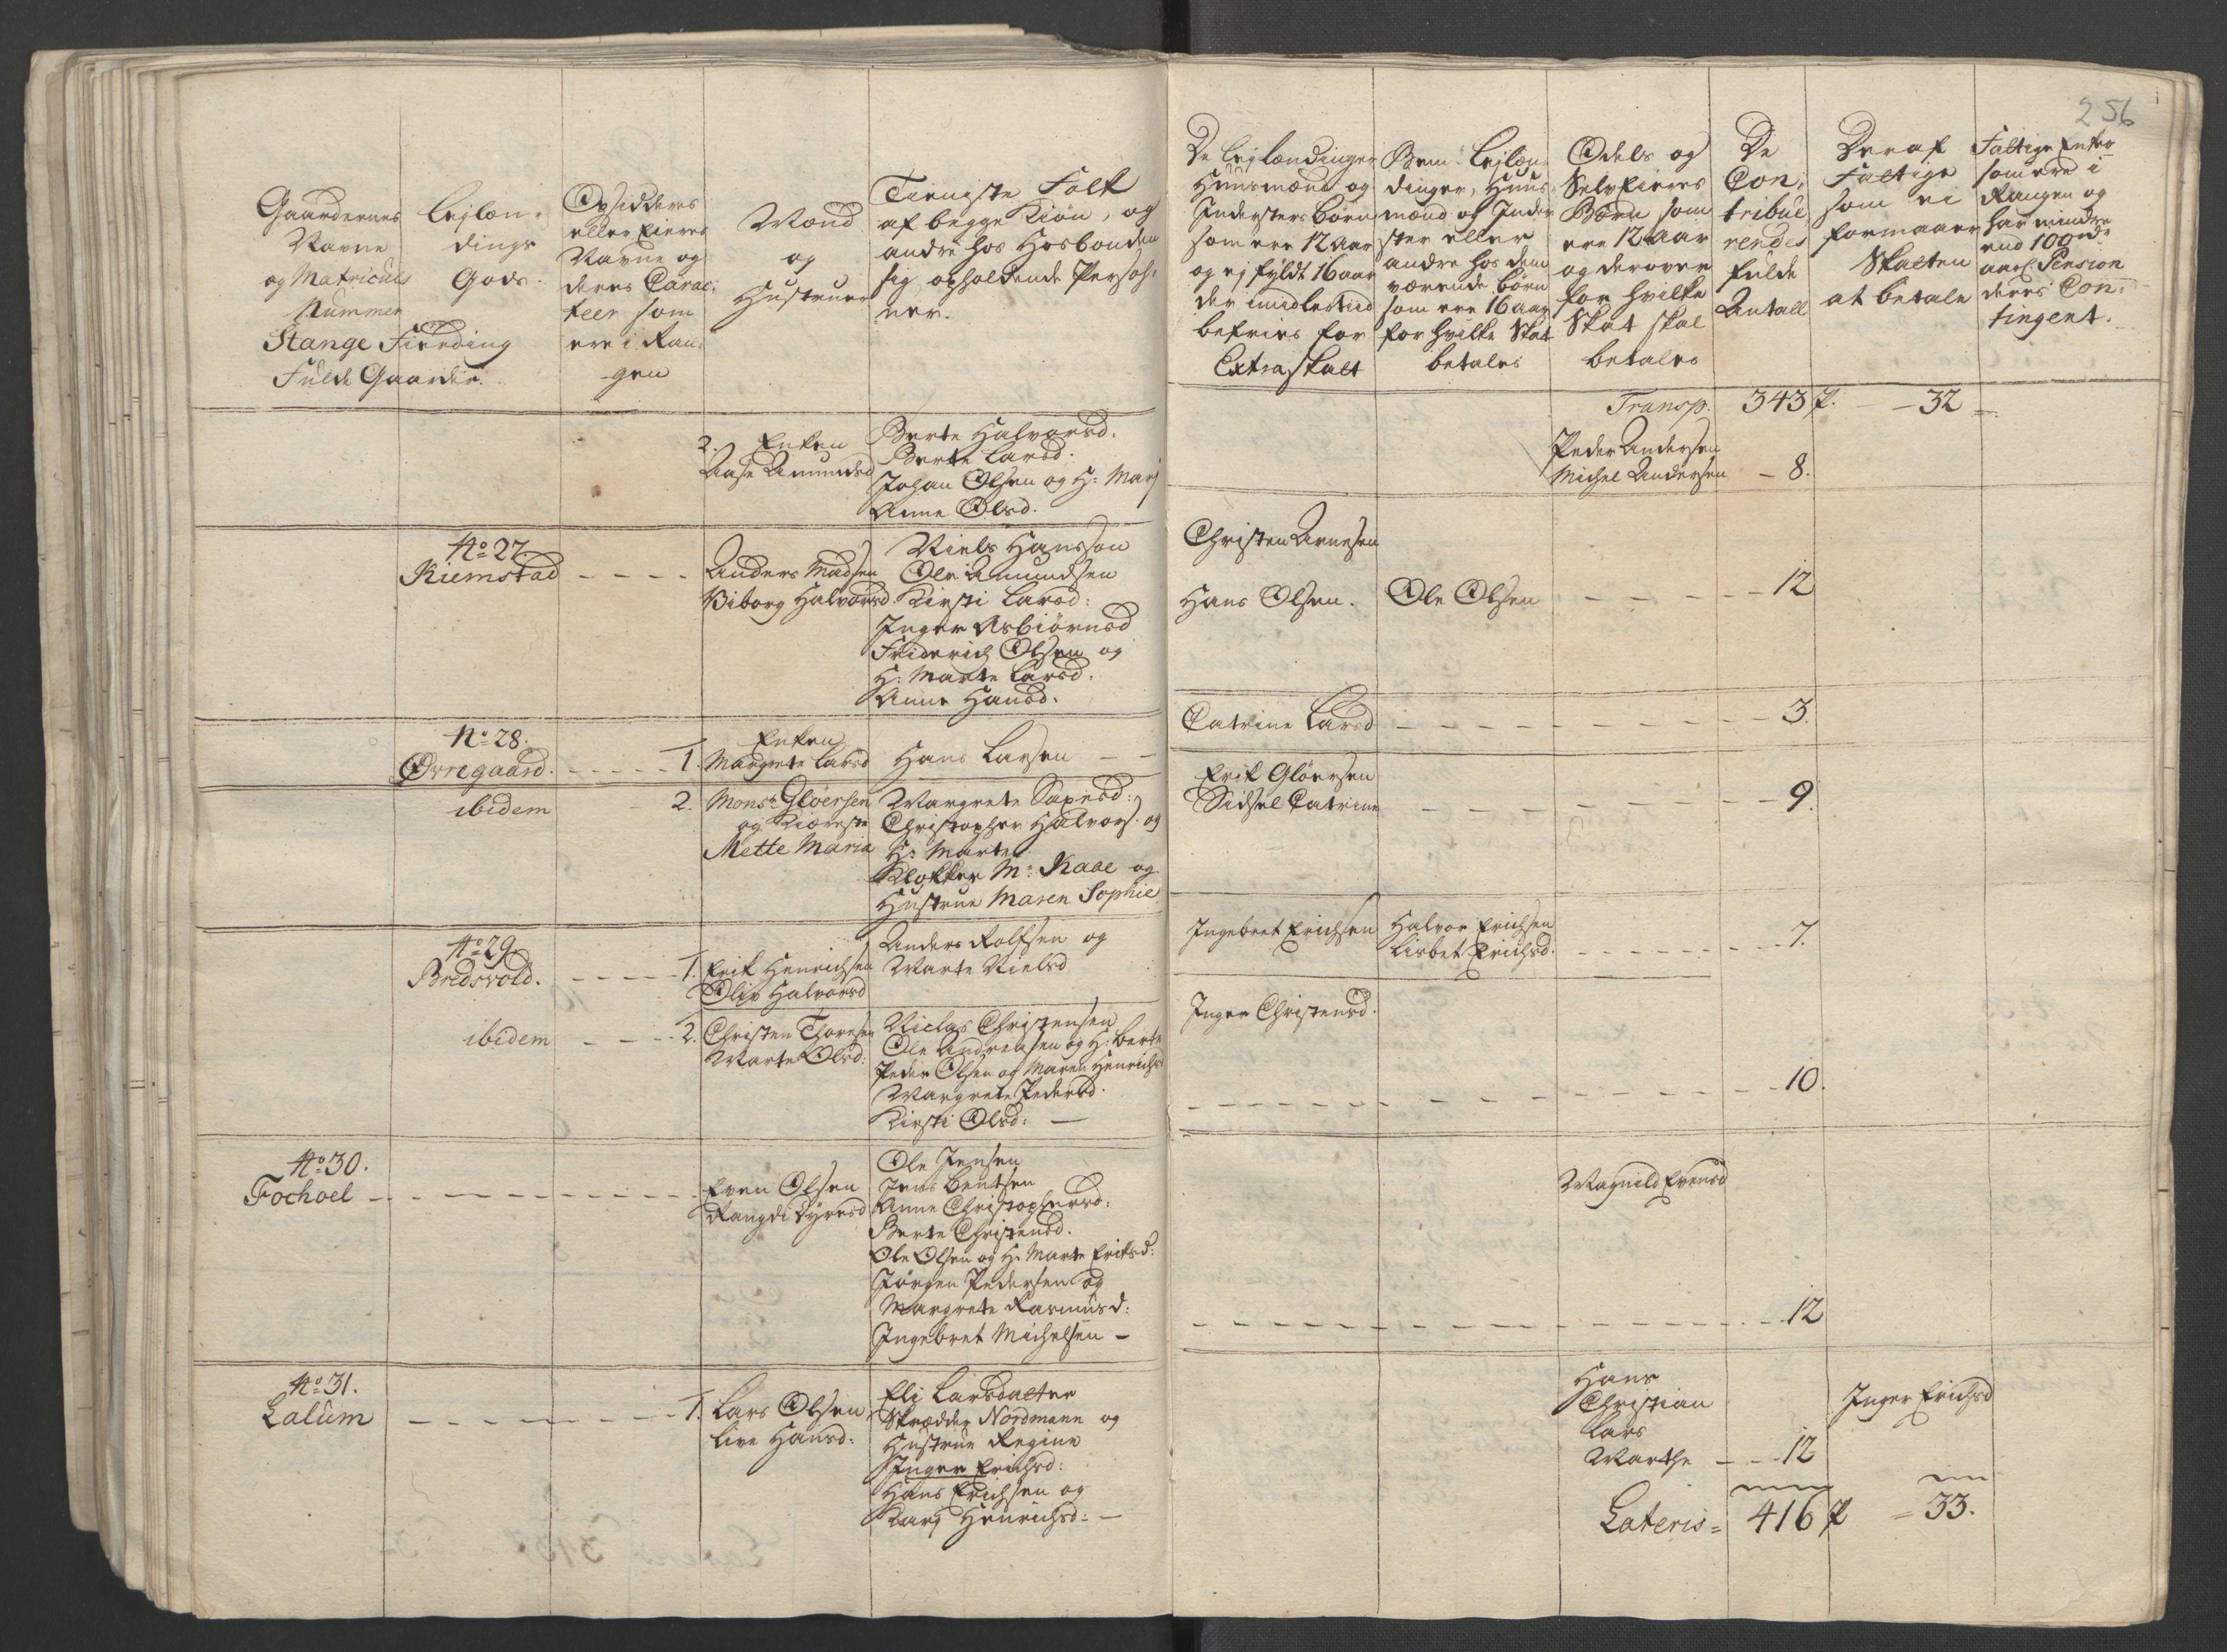 256
Gaardernes
Navne
og Matriculs
Nummer
Stange Fierding
Fulde Gaarder.
Lejlæn-
dings
Gods
Opsidders
eller Eieres
Navne og
deres Carac-
teer som
ere i Ran-
gen
Mænd
og
Hustruer
Tieniste Folk
af begge Kiøn, og
andre hos Hosbonden
sig opholdende Perso-
ner.
De Lejlændinger
Huusmænd og
Indersters Børn
som ere 12 aar
og ej fyldt 16 aar
der imidlertiid
befries for
Extraskatt
Bem: Lejlæn-
dinger, Huus-
mænd og Inder-
ster eller
andre hos dem
værende børn
som ere 16 aar
for hvilke Skat
betales
Odels og
Selveieres
Børn som
ere 12 aar
og derover
for hvilke
Skat skal
betales
De
Con-
tribue-
rendes
fulde
Antall
Deraf
Fattige
som ei
formaaer
Skatten
at betale
Fattige Enker
som ere i
Rangen og
har mindre
end 100 rdr
aarl: Pension
deres Con-
tingent.
Transp. 343 p. - 32
2. Enken
Aase Amundsd
Berte Halvorsd.
Berte Larsd.
Johan Olsen og H: Mari
Anne Olsd.
Peder Andersen
Michel Andersen - 8.
No 27.
Kiemstad
Anders Madsen
Viborg Halvorsd.
Niels Hansson
Ole Amundsen
Kirsti Larsd:
Inger Asbiørnsd
Friderich Olsen og
H: Marte Larsd:
Anne Hansd.
Christen Arnesen
Hans Olsen. Ole Olsen - 12
No 28.
Øvregaard. 1. Enken
Margrete Larsd Hans Larsen
Catrine Larsd - 3.
ibidem 2. Monsr Gløersen
og Kiæreste
Mette Maria
Margrete Saxesd:
Christopher Halvors: og
H: Marte
Klokker Mr: Kaae og
Hustrue Maren Sophie
Erik Gløersen
Sidsel Catrine - 9.
No 29.
Bredsvold. 1. Erik Henrichsen
Oliv Halvorsd
Anders Rolfsen og
Marte Nielsd
Ingebret Erichsen Halvor Erichsen
Lisbet Erichsd. - 7.
ibidem 2. Christen Thoresen
Marte Olsd:
Niclas Christensen
Ole Andreasen og H: Berte
Peder Olsen og Maren Henrichs
Margrete Pedersd.
Kirsti Olsd:
Inger Christensd.
- 10.
No 30.
Fochoel
Even Olsen
Rangdi Dyresd
Ole Jensen
Jens Bentsen
Anne Christophersd:
Berte Christensd.
Ole Olsen og H: Marte Eriksd:
Jørgen Pedersen og
Margrete Rasmusd:
Ingebret Michelsen
Magnild Evensd
- 12
No 31.
Lalum 1. Lars Olsen
Live Hansd:
Eli Larsdatter
Skrædder Nordmann og
Hustrue Regine
Inger Erichsd:
Hans Erichsen og
Kari Henrichsd:
Hans
Christian
Lars
Marthe - 12
Inger Erichsd
Lateris = 416 p = 33.